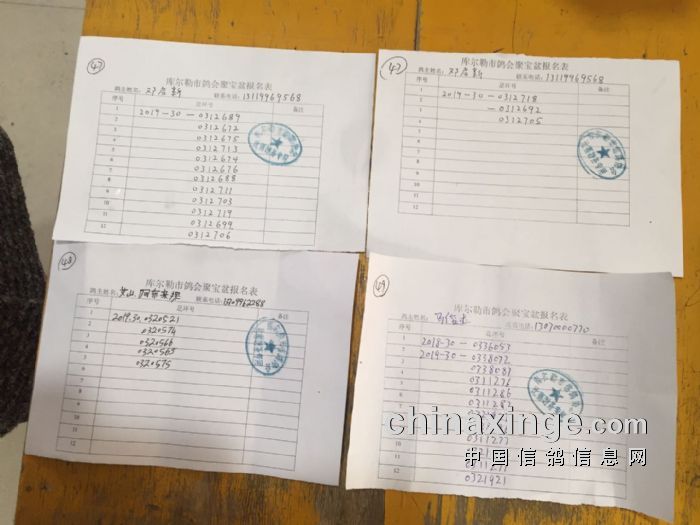 47
库尔勒市鸽会聚宝盆报名表
鸽主姓名: 邓启新 联系电话: 13119969568
序号 总环号 备注
1 2019-30-0312689
2 0312672
3 0312675
4 0312713
5 0312674
6 0312676
7 0312688
8 0312711
9 0312703
10 0312719
11 0312699
12 0312706
47
库尔勒市鸽会聚宝盆报名表
鸽主姓名: 邓启新 联系电话: 13119969568
序号 总环号 备注
1 2019-30-0312718
2 -0312692
3 0312705
4
5
6
7
8
9
10
11
12
48
库尔勒市鸽会聚宝盆报名表
鸽主姓名: 阿布来提 联系电话:
序号 总环号 备注
1 2019-30-0320521
2 0320574
3 0320566
4 0320565
5 0320575
6
7
8
9
10
11
12
49
库尔勒市鸽会聚宝盆报名表
鸽主姓名: 联系电话: 13070000770
序号 总环号 备注
1 2018-30-0336053
2 2019-30-0338072
3 0338081
4 0311276
5 0311286
6 0311282
10 0311277
12 0321921
chinaxinge.com
中国信鸽信息网